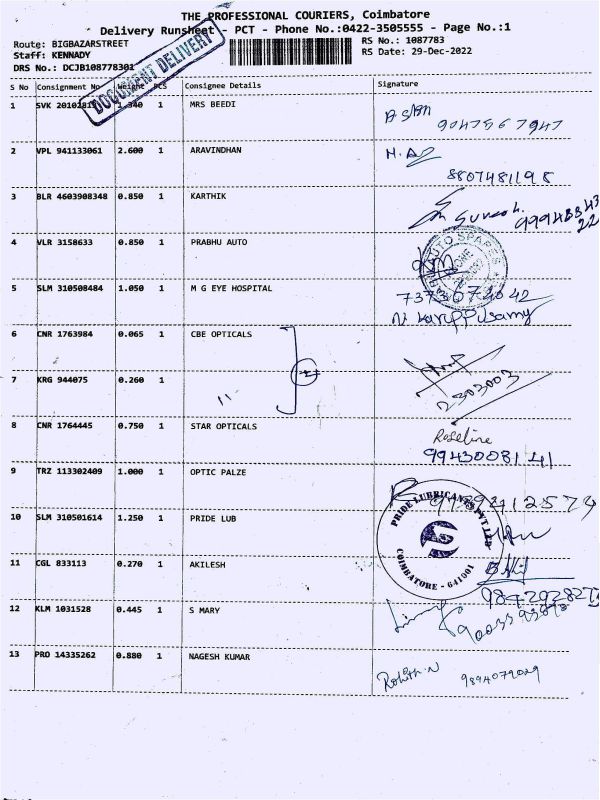 THE PROFESSIONAL COURIERS, Coimbatore
Delivery Runsheet - PCT - Phone No.:0422-3505555 - Page No.:1
Route: BIGBAZARSTREET
Staff: KENNADY
DRS No.: DCJB108778301
RS No.: 1087783
RS Date: 29-Dec-2022
DOCUMENT DELIVERY
S No Consignment No Weight PCS Consignee Details Signature
1 SVK 1.340 1 MRS BEEDI
9047567947
2 VPL 941133061 2.600 1 ARAVINDHAN
8807481198
3 BLR 4603908348 0.850 1 KARTHIK
Suresh.
4 VLR 3158633 0.850 1 PRABHU AUTO
AUTO SPARES
5 SLM 310508484 1.050 1 M G EYE HOSPITAL
N. Karuppusamy
6 CNR 1763984 0.065 1 CBE OPTICALS
7 KRG 944075 0.260 1
"
2303003
8 CNR 1764445 0.750 1 STAR OPTICALS
Roseline
9943008141
9 TRZ 113302409 1.000 1 OPTIC PALZE
10 SLM 310501614 1.250 1 PRIDE LUB
PRIDE LUBRICANTS PVT LTD
COIMBATORE - 641001
11 CGL 833113 0.270 1 AKILESH
12 KLM 1031528 0.445 1 S MARY
13 PRO 14335262 0.880 1 NAGESH KUMAR
Rohith.N 9894079029